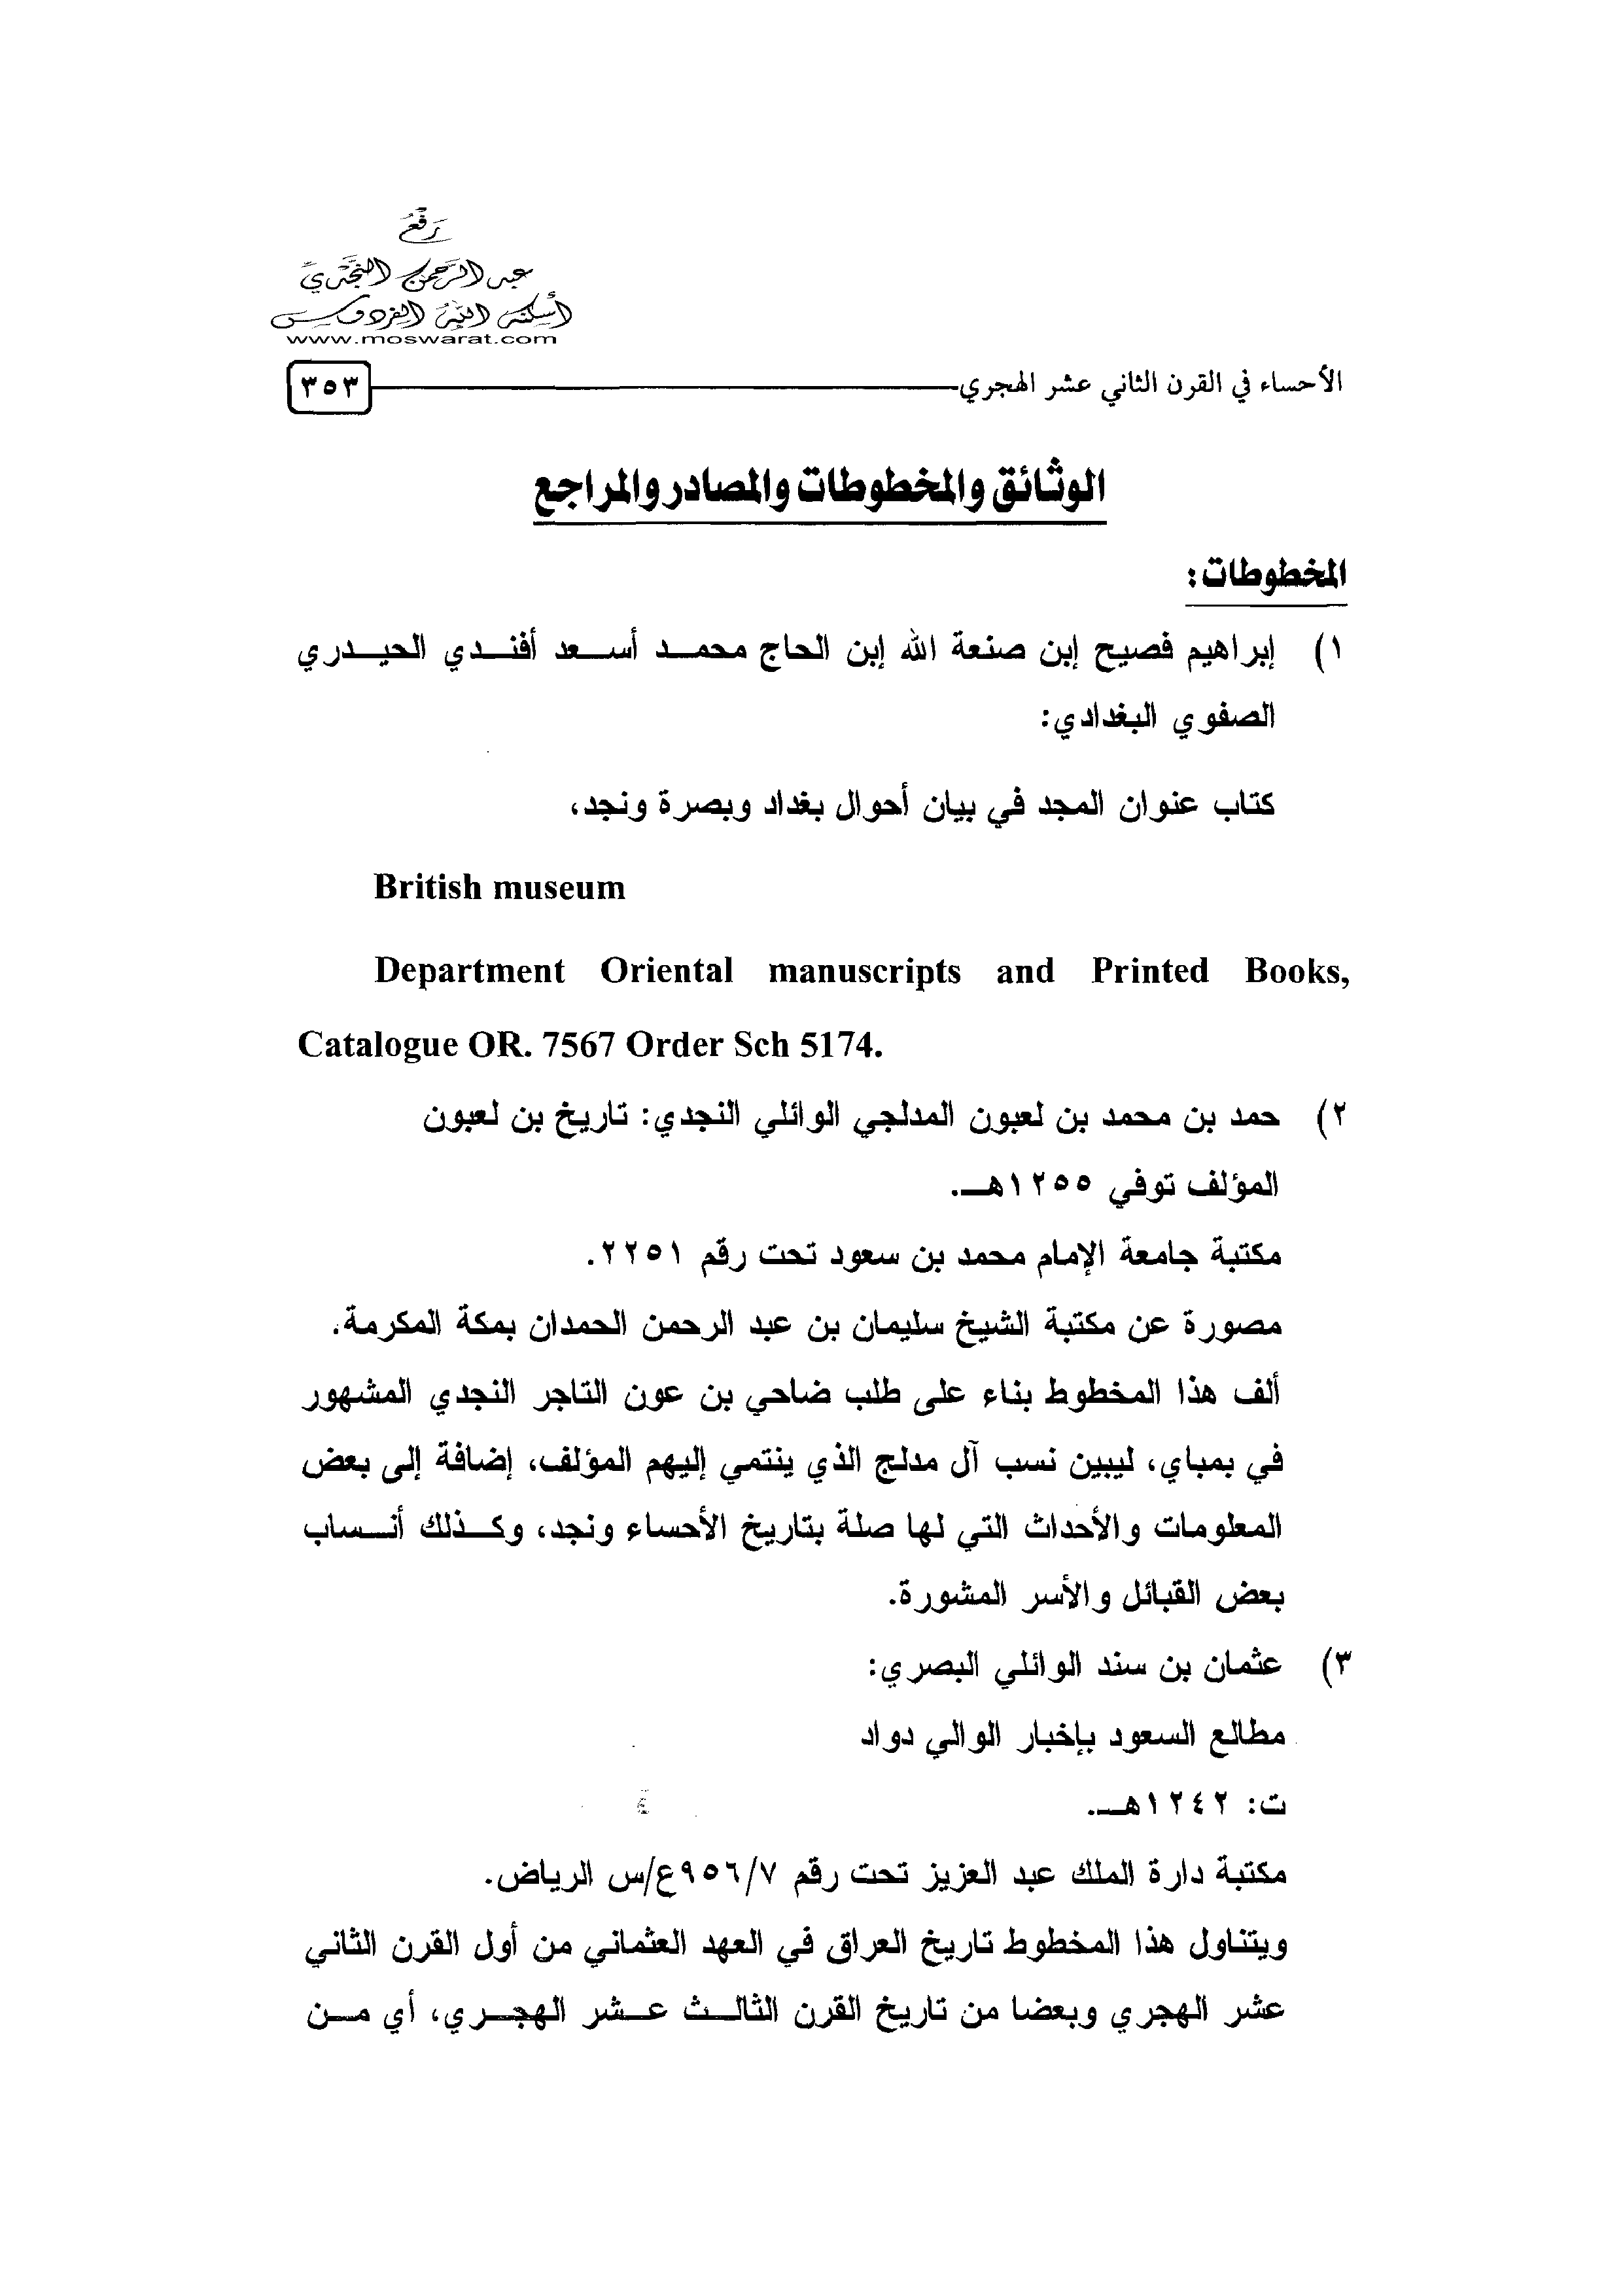 رفع
عبد الرحمن النجدي
أسكنه الله الفردوس
www.moswarat.com
الأحساء في القرن الثاني عشر الهجري ٣٥٣
الوثائق والمخطوطات والمصادر والمراجع
المخطوطات:
١) إبراهيم فصيح إبن صنعة الله إبن الحاج محمد أسعد أفندي الحيدري
الصفوي البغدادي:
كتاب عنوان المجد في بيان أحوال بغداد وبصرة ونجد،
British museum
Department Oriental manuscripts and Printed Books,
Catalogue OR. 7567 Order Sch 5174.
٢) حمد بن محمد بن لعبون المدلجي الوائلي النجدي: تاريخ بن لعبون
المؤلف توفي ١٢٥٥هـ.
مكتبة جامعة الإمام محمد بن سعود تحت رقم ٢٢٥١.
مصورة عن مكتبة الشيخ سليمان بن عبد الرحمن الحمدان بمكة المكرمة.
ألف هذا المخطوط بناء على طلب ضاحي بن عون التاجر النجدي المشهور
في بمباي، ليبين نسب آل مدلج الذي ينتمي إليهم المؤلف، إضافة إلى بعض
المعلومات والأحداث التي لها صلة بتاريخ الأحساء ونجد، وكذلك أنساب
بعض القبائل والأسر المشورة.
٣) عثمان بن سند الوائلي البصري:
مطالع السعود بإخبار الوالي دواد
ت: ١٢٤٢هـ.
مكتبة دارة الملك عبد العزيز تحت رقم ٩٥٦/٧ع/س الرياض.
ويتناول هذا المخطوط تاريخ العراق في العهد العثماني من أول القرن الثاني
عشر الهجري وبعضا من تاريخ القرن الثالث عشر الهجري، أي من